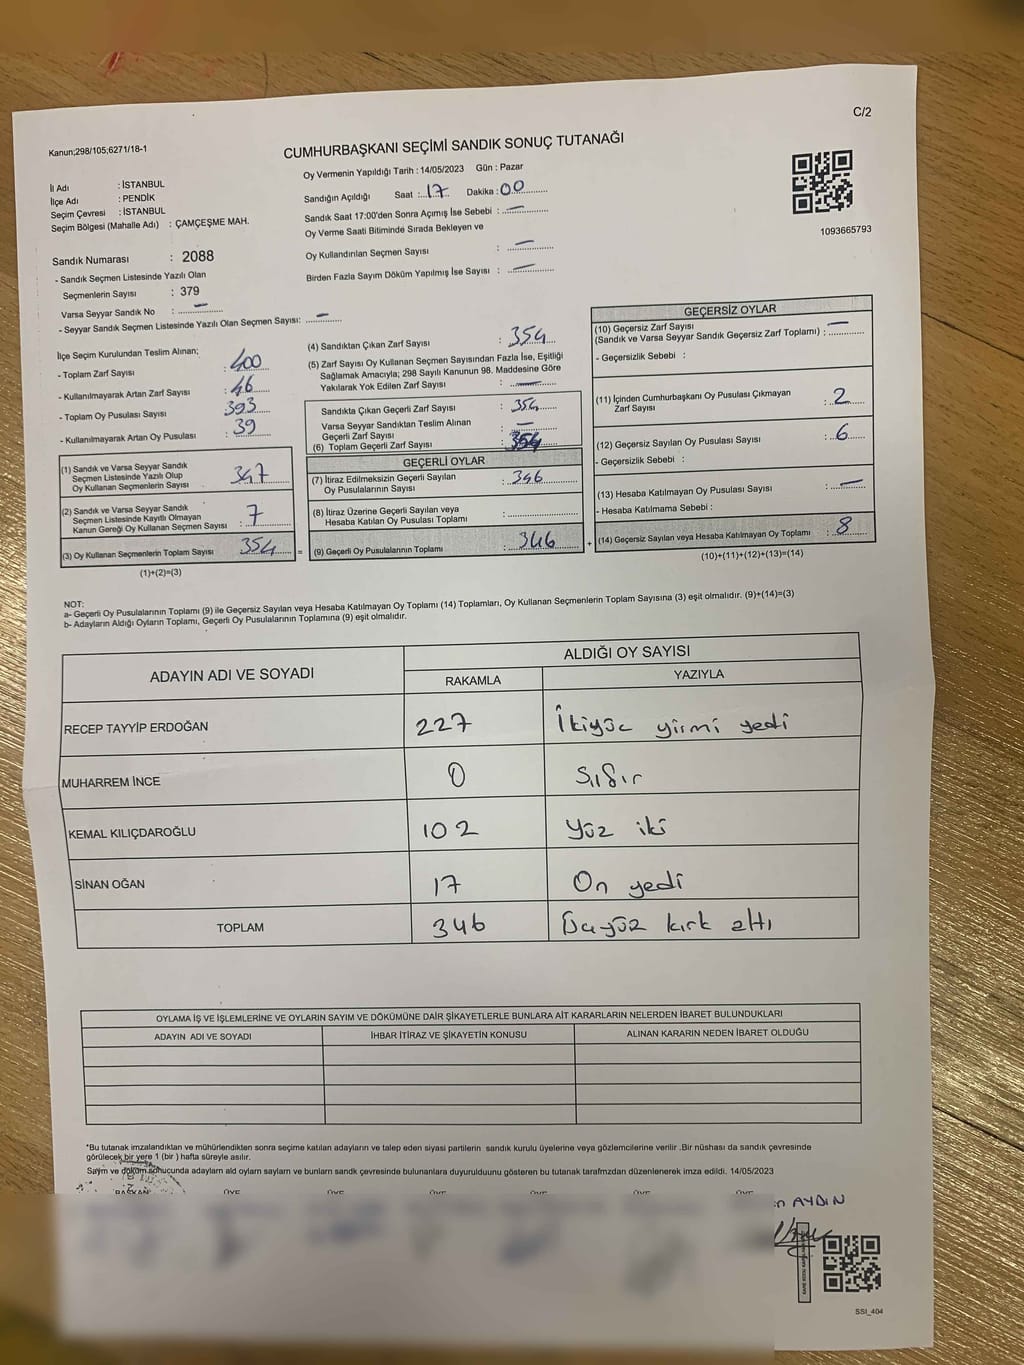 C/2
Kanun;298/105;6271/18-1
CUMHURBAŞKANI SEÇİMİ SANDIK SONUÇ TUTANAĞI
Oy Vermenin Yapıldığı Tarih : 14/05/2023 Gün : Pazar
İl Adı : İSTANBUL
İlçe Adı : PENDİK
Seçim Çevresi : İSTANBUL
Seçim Bölgesi (Mahalle Adı) : ÇAMÇEŞME MAH.
Sandığın Açıldığı Saat : 17 Dakika : 00
Sandık Saat 17:00'den Sonra Açımış İse Sebebi : —
Oy Verme Saati Bitiminde Sırada Bekleyen ve
Oy Kullandırılan Seçmen Sayısı : —
Birden Fazla Sayım Döküm Yapılmış İse Sayısı : —
1093665793
Sandık Numarası : 2088
- Sandık Seçmen Listesinde Yazılı Olan
Seçmenlerin Sayısı : 379
Varsa Seyyar Sandık No : —
- Seyyar Sandık Seçmen Listesinde Yazılı Olan Seçmen Sayısı: —
İlçe Seçim Kurulundan Teslim Alınan;
- Toplam Zarf Sayısı : 400
- Kullanılmayarak Artan Zarf Sayısı : 46
- Toplam Oy Pusulası Sayısı : 393
- Kullanılmayarak Artan Oy Pusulası : 39
(1) Sandık ve Varsa Seyyar Sandık
Seçmen Listesinde Yazılı Olup
Oy Kullanan Seçmenlerin Sayısı : 347
(2) Sandık ve Varsa Seyyar Sandık
Seçmen Listesinde Kayıtlı Olmayan
Kanun Gereği Oy Kullanan Seçmen Sayısı : 7
(3) Oy Kullanan Seçmenlerin Toplam Sayısı 354 =
(1)+(2)=(3)
(4) Sandıktan Çıkan Zarf Sayısı : 354
(5) Zarf Sayısı Oy Kullanan Seçmen Sayısından Fazla İse, Eşitliği
Sağlamak Amacıyla; 298 Sayılı Kanunun 98. Maddesine Göre
Yakılarak Yok Edilen Zarf Sayısı : —
Sandıkta Çıkan Geçerli Zarf Sayısı : 354
Varsa Seyyar Sandıktan Teslim Alınan
Geçerli Zarf Sayısı : —
(6) Toplam Geçerli Zarf Sayısı : 354
GEÇERLİ OYLAR
(7) İtiraz Edilmeksizin Geçerli Sayılan
Oy Pusulalarının Sayısı : 346
(8) İtiraz Üzerine Geçerli Sayılan veya
Hesaba Katılan Oy Pusulası Toplamı :
(9) Geçerli Oy Pusulalarının Toplamı : 346 +
GEÇERSİZ OYLAR
(10) Geçersiz Zarf Sayısı
(Sandık ve Varsa Seyyar Sandık Geçersiz Zarf Toplamı) : —
- Geçersizlik Sebebi :
(11) İçinden Cumhurbaşkanı Oy Pusulası Çıkmayan
Zarf Sayısı : 2
(12) Geçersiz Sayılan Oy Pusulası Sayısı : 6
- Geçersizlik Sebebi :
(13) Hesaba Katılmayan Oy Pusulası Sayısı : —
- Hesaba Katılmama Sebebi :
(14) Geçersiz Sayılan veya Hesaba Katılmayan Oy Toplamı : 8
(10)+(11)+(12)+(13)=(14)
NOT:
a- Geçerli Oy Pusulalarının Toplamı (9) ile Geçersiz Sayılan veya Hesaba Katılmayan Oy Toplamı (14) Toplamları, Oy Kullanan Seçmenlerin Toplam Sayısına (3) eşit olmalıdır. (9)+(14)=(3)
b- Adayların Aldığı Oyların Toplamı, Geçerli Oy Pusulalarının Toplamına (9) eşit olmalıdır.
ADAYIN ADI VE SOYADI
ALDIĞI OY SAYISI
RAKAMLA YAZIYLA
RECEP TAYYİP ERDOĞAN 227 İkiyüz yirmi yedi
MUHARREM İNCE 0 Sıfır
KEMAL KILIÇDAROĞLU 102 Yüz iki
SİNAN OĞAN 17 On yedi
TOPLAM 346 Üçyüz kırk altı
OYLAMA İŞ VE İŞLEMLERİNE VE OYLARIN SAYIM VE DÖKÜMÜNE DAİR ŞİKAYETLERLE BUNLARA AİT KARARLARIN NELERDEN İBARET BULUNDUKLARI
ADAYIN ADI VE SOYADI İHBAR İTİRAZ VE ŞİKAYETİN KONUSU ALINAN KARARIN NEDEN İBARET OLDUĞU
*Bu tutanak imzalandıktan ve mühürlendikten sonra seçime katılan adayların ve talep eden siyasi partilerin sandık kurulu üyelerine veya gözlemcilerine verilir .Bir nüshası da sandık çevresinde
görülecek bir yere 1 (bir ) hafta süreyle asılır.
Sayım ve döküm sonucunda adayların ald oyların sayların ve bunların sandk çevresinde bulunanlara duyurulduunu gösteren bu tutanak tarafmzdan düzenlenerek imza edildi. 14/05/2023
BAŞKAN ÜYE ÜYE ÜYE ÜYE ÜYE ÜYE
AYDIN
SSI_404